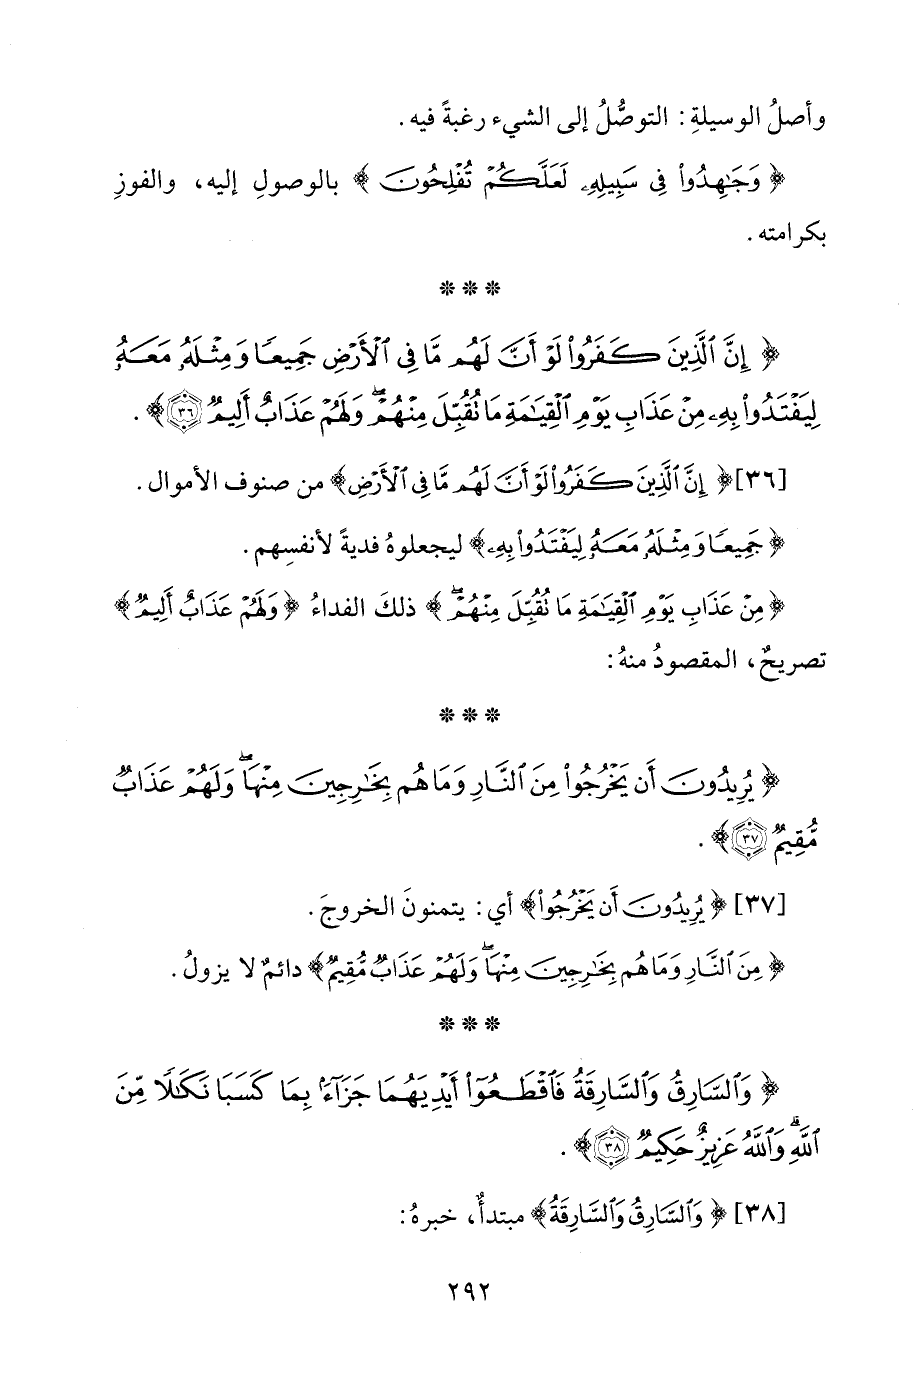 وأصلُ الوسيلةِ: التوصُّلُ إلى الشيء رغبةً فيه.
﴿ وَجَٰهِدُوا۟ فِى سَبِيلِهِۦ لَعَلَّكُمْ تُفْلِحُونَ ﴾ بالوصولِ إليه، والفوزِ
بكرامته.
* * *
﴿ إِنَّ ٱلَّذِينَ كَفَرُوا۟ لَوْ أَنَّ لَهُم مَّا فِى ٱلْأَرْضِ جَمِيعًا وَمِثْلَهُۥ مَعَهُۥ
لِيَفْتَدُوا۟ بِهِۦ مِنْ عَذَابِ يَوْمِ ٱلْقِيَٰمَةِ مَا تُقُبِّلَ مِنْهُمْ ۖ وَلَهُمْ عَذَابٌ أَلِيمٌ ۝٣٦ ﴾.
[٣٦] ﴿ إِنَّ ٱلَّذِينَ كَفَرُوا۟ لَوْ أَنَّ لَهُم مَّا فِى ٱلْأَرْضِ ﴾ من صنوف الأموال.
﴿ جَمِيعًا وَمِثْلَهُۥ مَعَهُۥ لِيَفْتَدُوا۟ بِهِۦ ﴾ ليجعلوهُ فديةً لأنفسِهم.
﴿ مِنْ عَذَابِ يَوْمِ ٱلْقِيَٰمَةِ مَا تُقُبِّلَ مِنْهُمْ ۖ ﴾ ذلكَ الفداءُ ﴿ وَلَهُمْ عَذَابٌ أَلِيمٌ ﴾
تصريحٌ، المقصودُ منهُ:
* * *
﴿ يُرِيدُونَ أَن يَخْرُجُوا۟ مِنَ ٱلنَّارِ وَمَا هُم بِخَٰرِجِينَ مِنْهَا ۖ وَلَهُمْ عَذَابٌ
مُّقِيمٌ ۝٣٧ ﴾.
[٣٧] ﴿ يُرِيدُونَ أَن يَخْرُجُوا۟ ﴾ أي: يتمنونَ الخروجَ.
﴿ مِنَ ٱلنَّارِ وَمَا هُم بِخَٰرِجِينَ مِنْهَا ۖ وَلَهُمْ عَذَابٌ مُّقِيمٌ ﴾ دائمٌ لا يزولُ.
* * *
﴿ وَٱلسَّارِقُ وَٱلسَّارِقَةُ فَٱقْطَعُوٓا۟ أَيْدِيَهُمَا جَزَآءًۢ بِمَا كَسَبَا نَكَٰلًا مِّنَ
ٱللَّهِ ۗ وَٱللَّهُ عَزِيزٌ حَكِيمٌ ۝٣٨ ﴾.
[٣٨] ﴿ وَٱلسَّارِقُ وَٱلسَّارِقَةُ ﴾ مبتدأٌ، خبرهُ:
٢٩٢